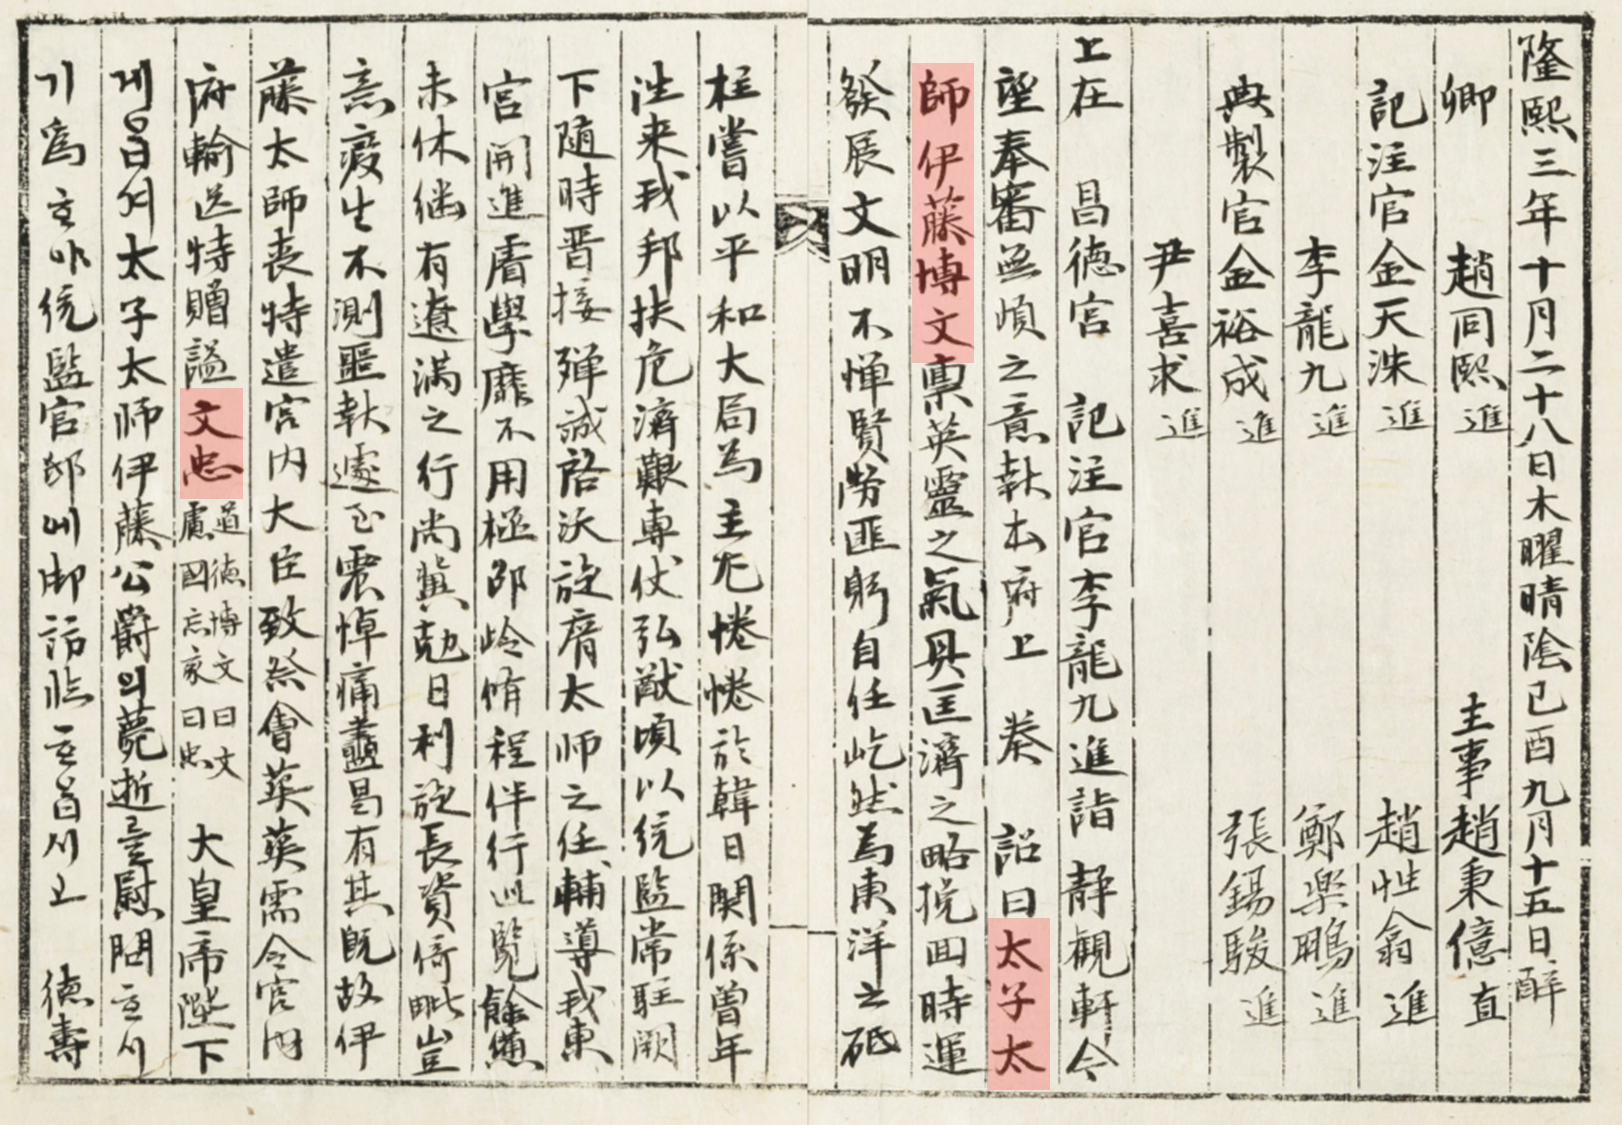 隆熙三年十月二十八日木曜晴陰己酉九月十五日辭
卿 趙同熙 進 主事趙秉億 直
記注官金天洙 進 趙性翕 進
李龍九 進 鄭樂鵬 進
典製官金裕成 進 張錫駿 進
尹喜求 進
上在 昌德宮 記注官李龍九進詣 靜觀軒令
望奉審無頉之意執本府上 奏 詔曰太子太
師伊藤博文稟英靈之氣具匡濟之略挽回時運
發展文明不憚賢勞匪躬自任屹然為東洋之砥
柱嘗以平和大局為主尤惓惓於韓日關係曾年
往来我邦扶危濟艱專仗弘猷頃以統監常駐闕
下隨時晋接殫誠啓沃旋膺太師之任輔導我東
宮開進睿學靡不用極邵齡脩程伴行巡覧餘憊
未休繼有遼滿之行尚冀勉日利旋長資倚毗豈
意疲生不測噩執遽至震悼痛盡曷有其既故伊
藤太師喪特遣宮內大臣致祭會葬葬需令宮內
府輸送特贈謚文忠 道德博文曰文 慮國忘家曰忠 大皇帝陛下
게읍셔太子太師伊藤公爵의薨逝를慰問ᄒᆞ시
기爲ᄒᆞ야統監官邸에御訪臨ᄒᆞ읍시고 德壽